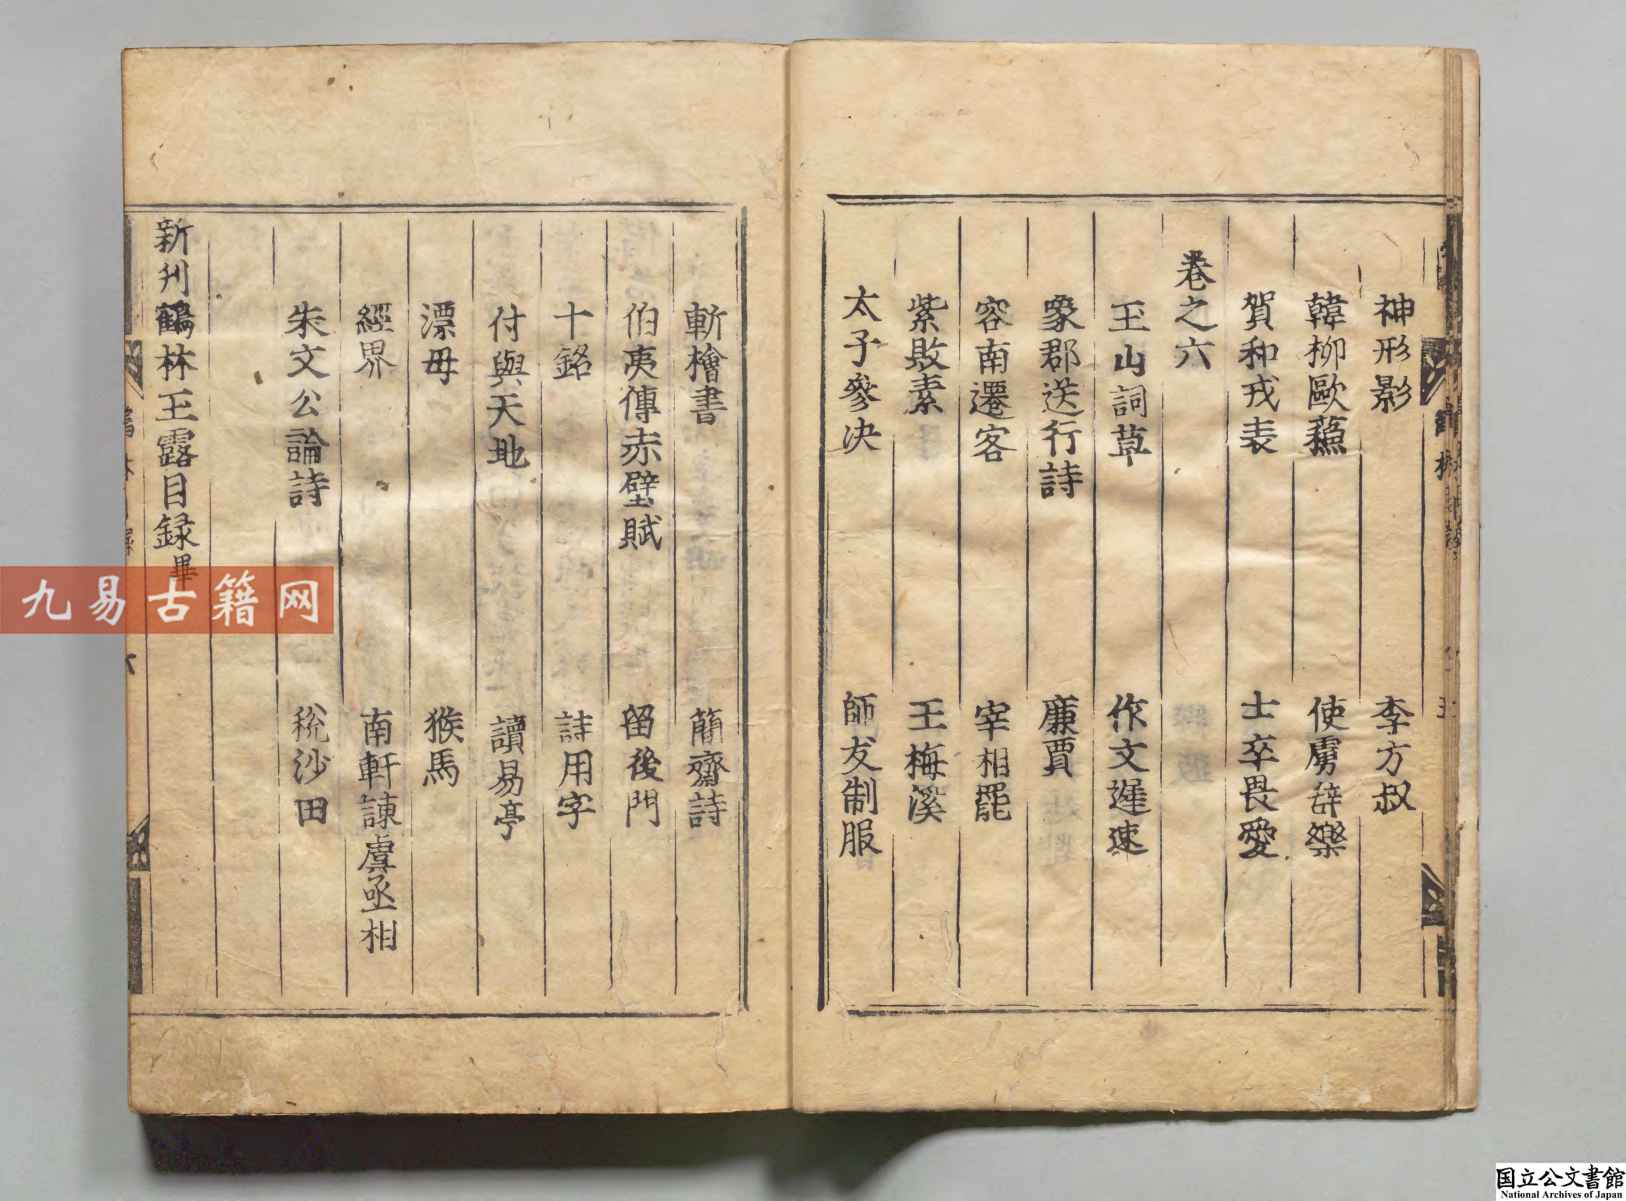 神形影
李方叔
韓柳歐蘓
使虜辝樂
賀和戎表
士卒畏愛
巻之六
玉山詞草
作文遲速
象郡送行詩
廉賈
容南遷客
宰相罷
紫敗素
王梅溪
太子參决
師友制服
斬檜書
簡齋詩
伯夷傳赤壁賦
留後門
十銘
詩用字
付與天地
讀易亭
漂母
猴馬
經界
南軒諌虞丞相
朱文公論詩
稅沙田
新刋鶴林玉露目録畢
九易古籍网
国立公文書館
National Archives of Japan